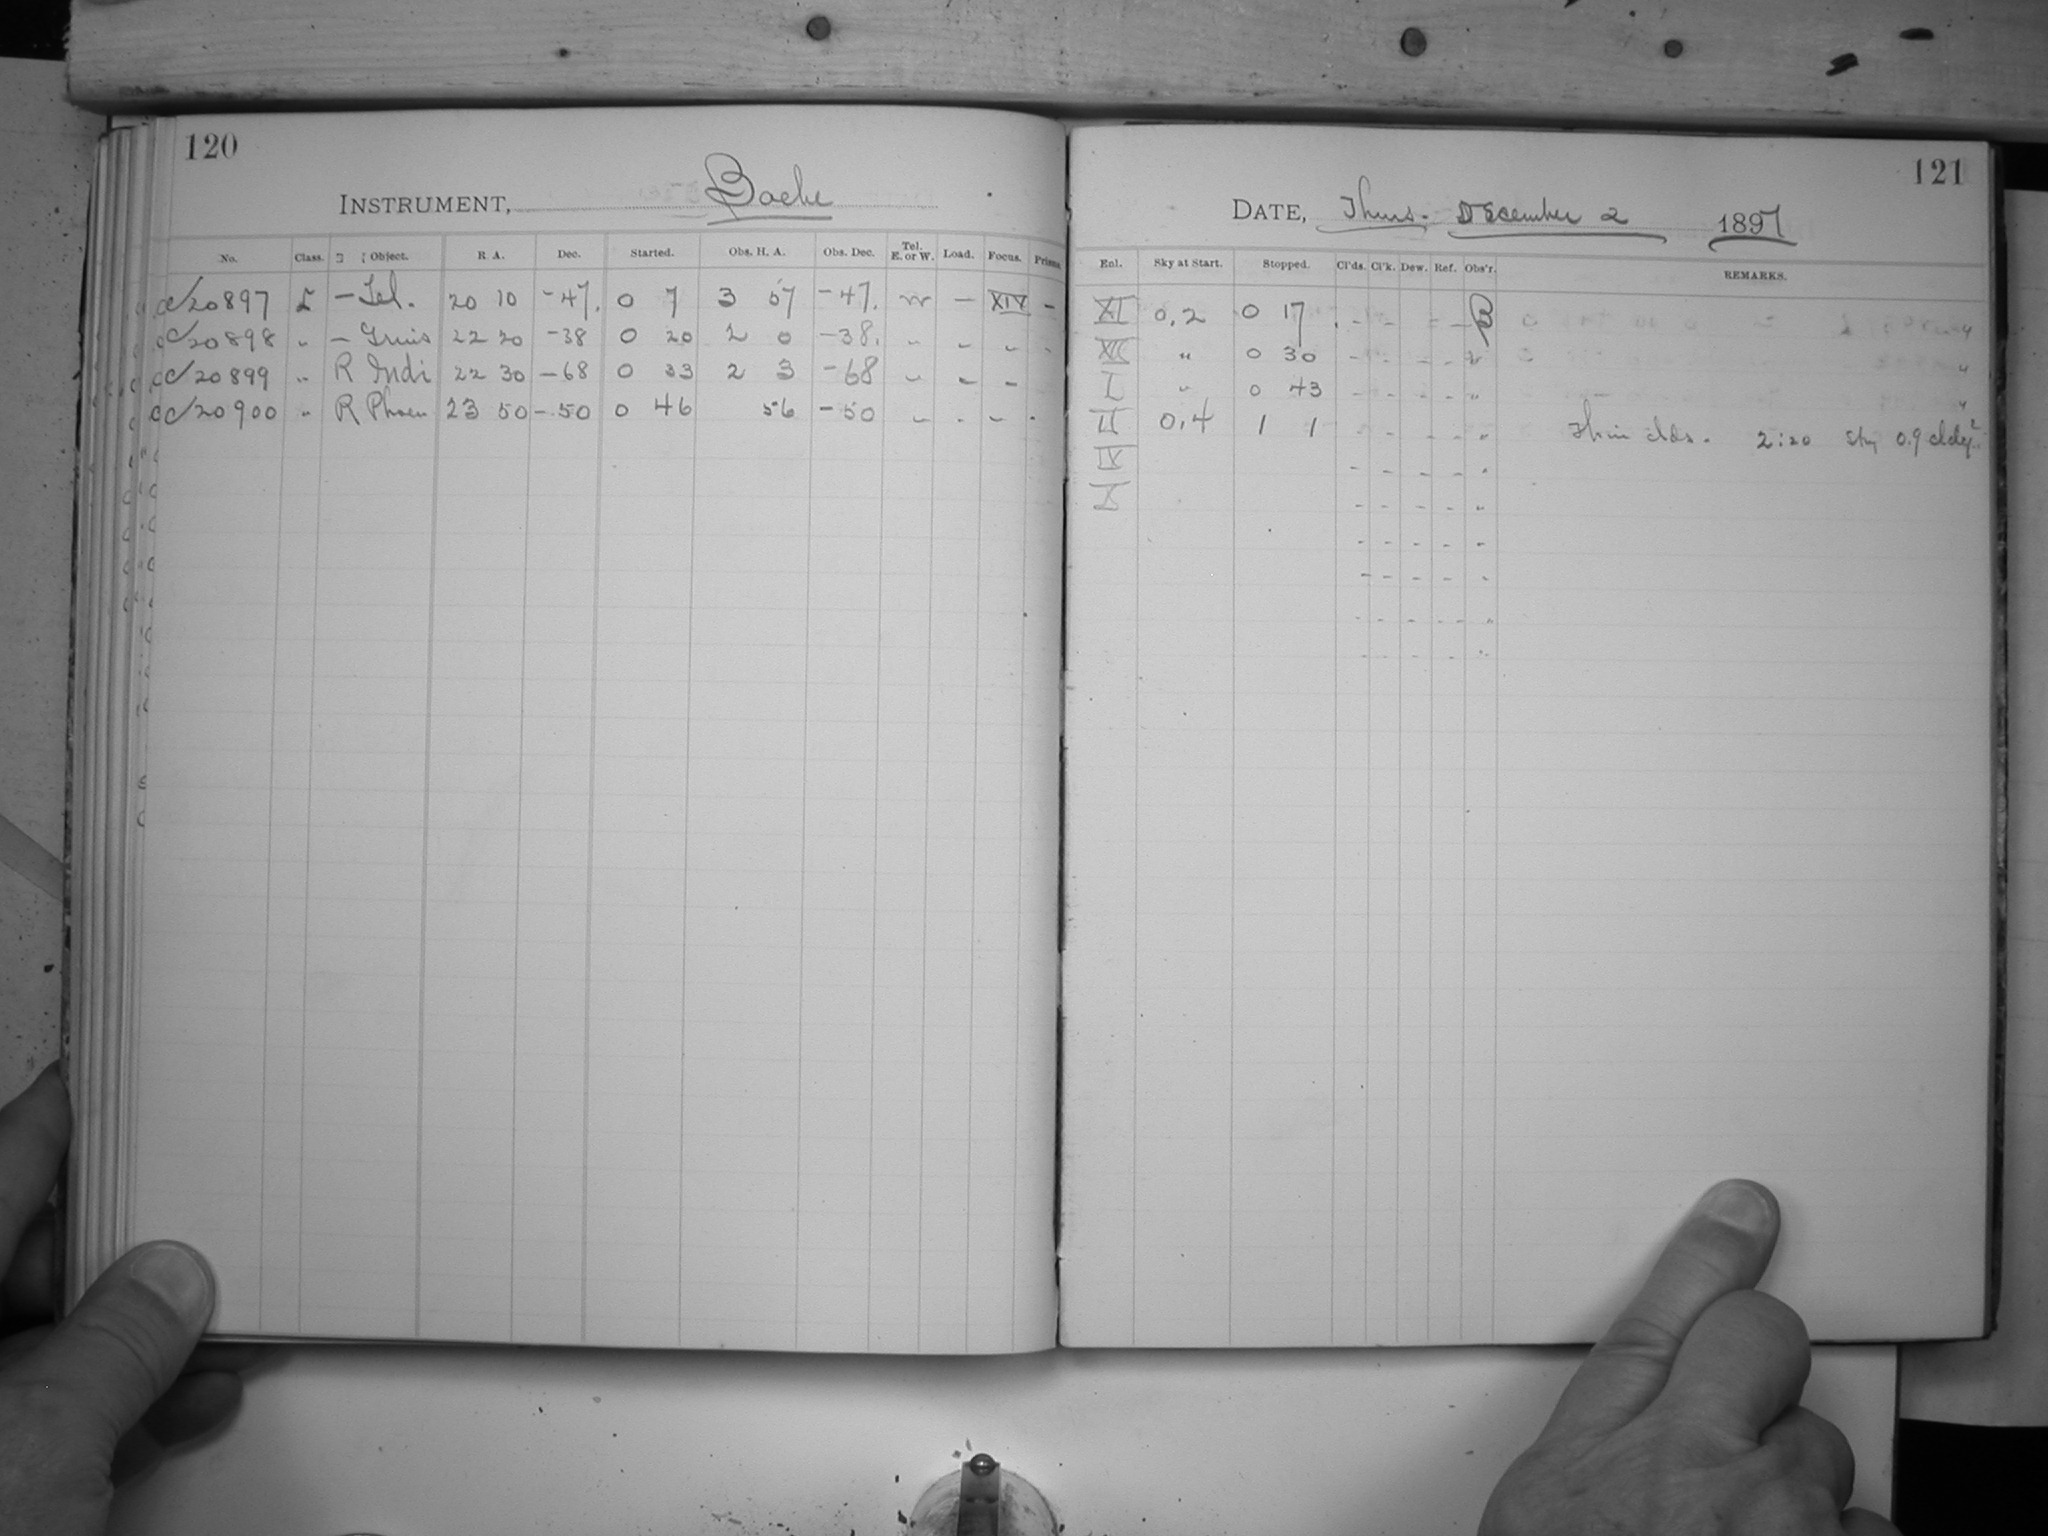 120
INSTRUMENT, Bache
No. Class. Object. R. A. Dec. Started. Obs. H. A. Obs. Dec. Tel. E. or W. Load. Focus. Prism.
20897 L — Tel. 20 10 -47. 0 7 3 57 -47. W — XIV -
20898 " — Gruis 22 20 -38 0 20 2 0 -38. " " " "
20899 " R Indi 22 30 -68 0 33 2 3 -68 " " "
20900 " R Phoen 23 50 -50 0 46 56 -50 " " " "
121
DATE, Thurs. December 2 1897
Enl. Sky at Start. Stopped. Cl'ds. Cl'k. Dew. Ref. Obs'r. REMARKS.
XI 0.2 0 17 - - - - B
XII " 0 30 - - - - "
I " 0 43 - - - - "
II 0.4 1 1 - - - - " Thin clds. 2:20 Sky 0.9 cldy
IX - - - - "
X - - - - "
- - - - "
- - - - "
- - - - "
- - - - "